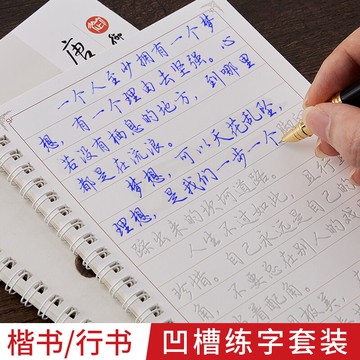 唐卿
一个人至少拥有一个梦
想，有一个理由去坚强。心
若没有栖息的地方，到哪里
都是在流浪。
梦想，可以天花乱坠，
理想，是我们一步一个
踩出来的坎坷道路。
人生不过如此，且行且
珍惜。自己永远是自己的
角，不要总在别人的戏
楷书/行书 凹槽练字套装